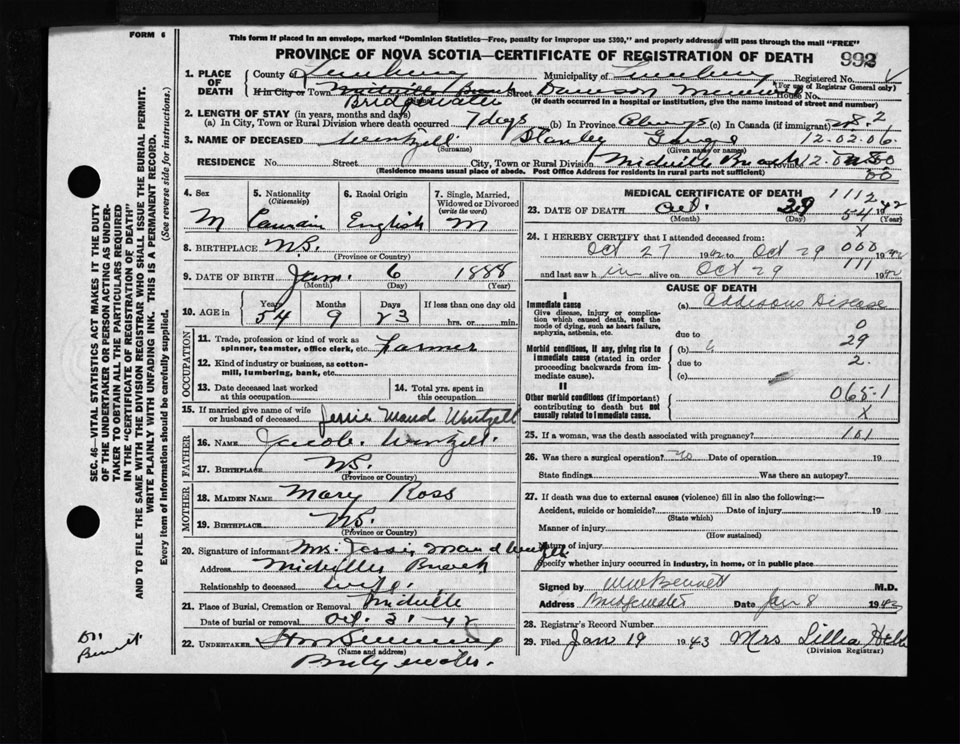 FORM 6
This form if placed in an envelope, marked "Dominion Statistics—Free, penalty for improper use $300," and properly addressed will pass through the mail "FREE"
PROVINCE OF NOVA SCOTIA—CERTIFICATE OF REGISTRATION OF DEATH 992
1. PLACE OF DEATH
County of Lunenburg Municipality of Lunenburg Registered No.
(For use of Registrar General only)
If in City or Town Midville Branch Street Dawson Memorial House No.
Bridgewater (If death occurred in a hospital or institution, give the name instead of street and number)
2. LENGTH OF STAY (in years, months and days)
(a) In City, Town or Rural Division where death occurred 7 days (b) In Province Always (c) In Canada (if immigrant) 8.2
3. NAME OF DECEASED Wentzell Stanley 12.02.06.
(Surname) (Given name or names)
RESIDENCE No. Street City, Town or Rural Division Midville Branch Province 12.0
(Residence means usual place of abode. Post Office Address for residents in rural parts not sufficient) 00
4. Sex M
5. Nationality (Citizenship)
6. Racial Origin English
7. Single, Married, Widowed or Divorced (write the word) M
8. BIRTHPLACE N.S.
(Province or Country)
9. DATE OF BIRTH Jan. 6 1888
(Month) (Day) (Year)
10. AGE in Years 54 Months 9 Days 23 If less than one day old hrs. or min.
OCCUPATION
11. Trade, profession or kind of work as spinner, teamster, office clerk, etc. Farmer
12. Kind of industry or business, as cotton-mill, lumbering, bank, etc.
13. Date deceased last worked at this occupation
14. Total yrs. spent in this occupation
15. If married give name of wife or husband of deceased Jessie Maud Wentzell
FATHER
16. NAME Jacob Wentzell
17. BIRTHPLACE N.S.
(Province or Country)
MOTHER
18. MAIDEN NAME Mary Ross
19. BIRTHPLACE N.S.
(Province or Country)
20. Signature of informant Mrs. Jessie Maud Wentzell
Address Midville Branch
Relationship to deceased wife.
21. Place of Burial, Cremation or Removal Midville
Date of burial or removal Oct. 31-42
22. UNDERTAKER
(Name and address)
Bridgewater.
MEDICAL CERTIFICATE OF DEATH 1112
23. DATE OF DEATH Oct. 29 1942
(Month) (Day) 54 (Year)
X
24. I HEREBY CERTIFY that I attended deceased from:
Oct 27 1942 to Oct 29 1942 000
and last saw him alive on Oct 29 1942 111
CAUSE OF DEATH
I
Immediate cause
Give disease, injury or complication which caused death, not the mode of dying, such as heart failure, asphyxia, asthenia, etc.
(a) Addisons Disease
0
due to 29
Morbid conditions, if any, giving rise to immediate cause (stated in order proceeding backwards from immediate cause).
(b)
due to 2.
(c)
II
Other morbid conditions (if important) contributing to death but not causally related to immediate cause.
065-1
X
25. If a woman, was the death associated with pregnancy? 101
26. Was there a surgical operation? no Date of operation 19
State findings Was there an autopsy?
27. If death was due to external causes (violence) fill in also the following:—
Accident, suicide or homicide? Date of injury 19
(State which)
Manner of injury
(How sustained)
Nature of injury
Specify whether injury occurred in industry, in home, or in public place
Signed by Bennett M.D.
Address Bridgewater Date Jan 8 1943
28. Registrar's Record Number
29. Filed Jan 19 1943 Mrs Lillia
(Division Registrar)
SEC. 46—VITAL STATISTICS ACT MAKES IT THE DUTY OF THE UNDERTAKER OR PERSON ACTING AS UNDERTAKER TO OBTAIN ALL THE PARTICULARS REQUIRED IN THE "CERTIFICATE OF REGISTRATION OF DEATH"
AND TO FILE THE SAME WITH THE DIVISION REGISTRAR WHO SHALL ISSUE THE BURIAL PERMIT.
WRITE PLAINLY WITH UNFADING INK. THIS IS A PERMANENT RECORD.
Every item of information should be carefully supplied. (See reverse side for instructions.)
Dr.
Bennett